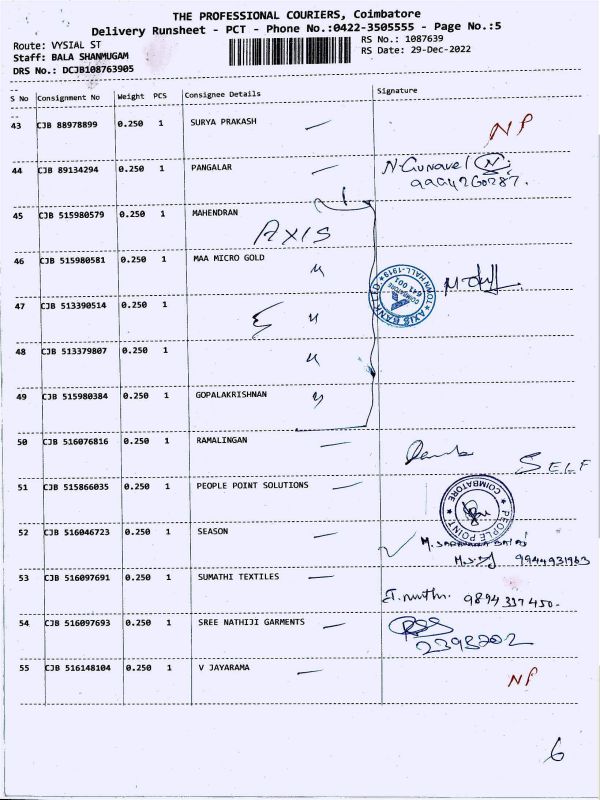 THE PROFESSIONAL COURIERS, Coimbatore
Delivery Runsheet - PCT - Phone No.:0422-3505555 - Page No.:5
Route: VYSIAL ST
RS No.: 1087639
Staff: BALA SHANMUGAM
RS Date: 29-Dec-2022
DRS No.: DCJB108763905
S No Consignment No Weight PCS Consignee Details Signature
43 CJB 88978899 0.250 1 SURYA PRAKASH NP
44 CJB 89134294 0.250 1 PANGALAR N. Gunavel N
9994260287.
45 CJB 515980579 0.250 1 MAHENDRAN
AXIS
46 CJB 515980581 0.250 1 MAA MICRO GOLD
AXIS BANK LTD TOWN HALL-1919 COIMBATORE 641 001
47 CJB 513390514 0.250 1
48 CJB 513379807 0.250 1
49 CJB 515980384 0.250 1 GOPALAKRISHNAN
50 CJB 516076816 0.250 1 RAMALINGAN
SELF
51 CJB 515866035 0.250 1 PEOPLE POINT SOLUTIONS
PEOPLE POINT COIMBATORE
52 CJB 516046723 0.250 1 SEASON
9944931963
53 CJB 516097691 0.250 1 SUMATHI TEXTILES
9894337450-
54 CJB 516097693 0.250 1 SREE NATHIJI GARMENTS
2398202
55 CJB 516148104 0.250 1 V JAYARAMA NP
6